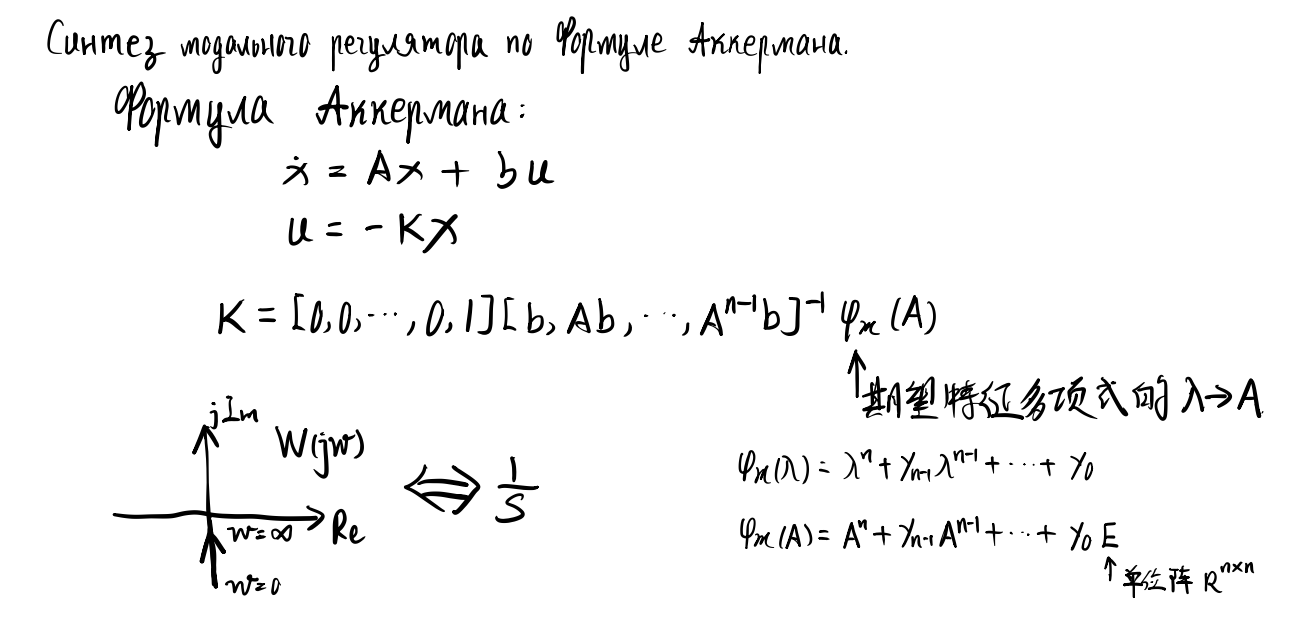 Синтез модального регулятора по Формуле Аккермана.
Формула Аккермана:
ẋ = Ax + bu
u = -Kx
K = [0,0,…,0,1][b, Ab, …, Aⁿ⁻¹b]⁻¹ φₘ(A)
期望特征多项式的 λ→A
jIm
W(jw)
⟺ 1/S
w=∞ Re
w=0
φₘ(λ) = λⁿ + γₙ₋₁λⁿ⁻¹ + … + γ₀
φₘ(A) = Aⁿ + γₙ₋₁Aⁿ⁻¹ + … + γ₀E
单位阵 Rⁿˣⁿ